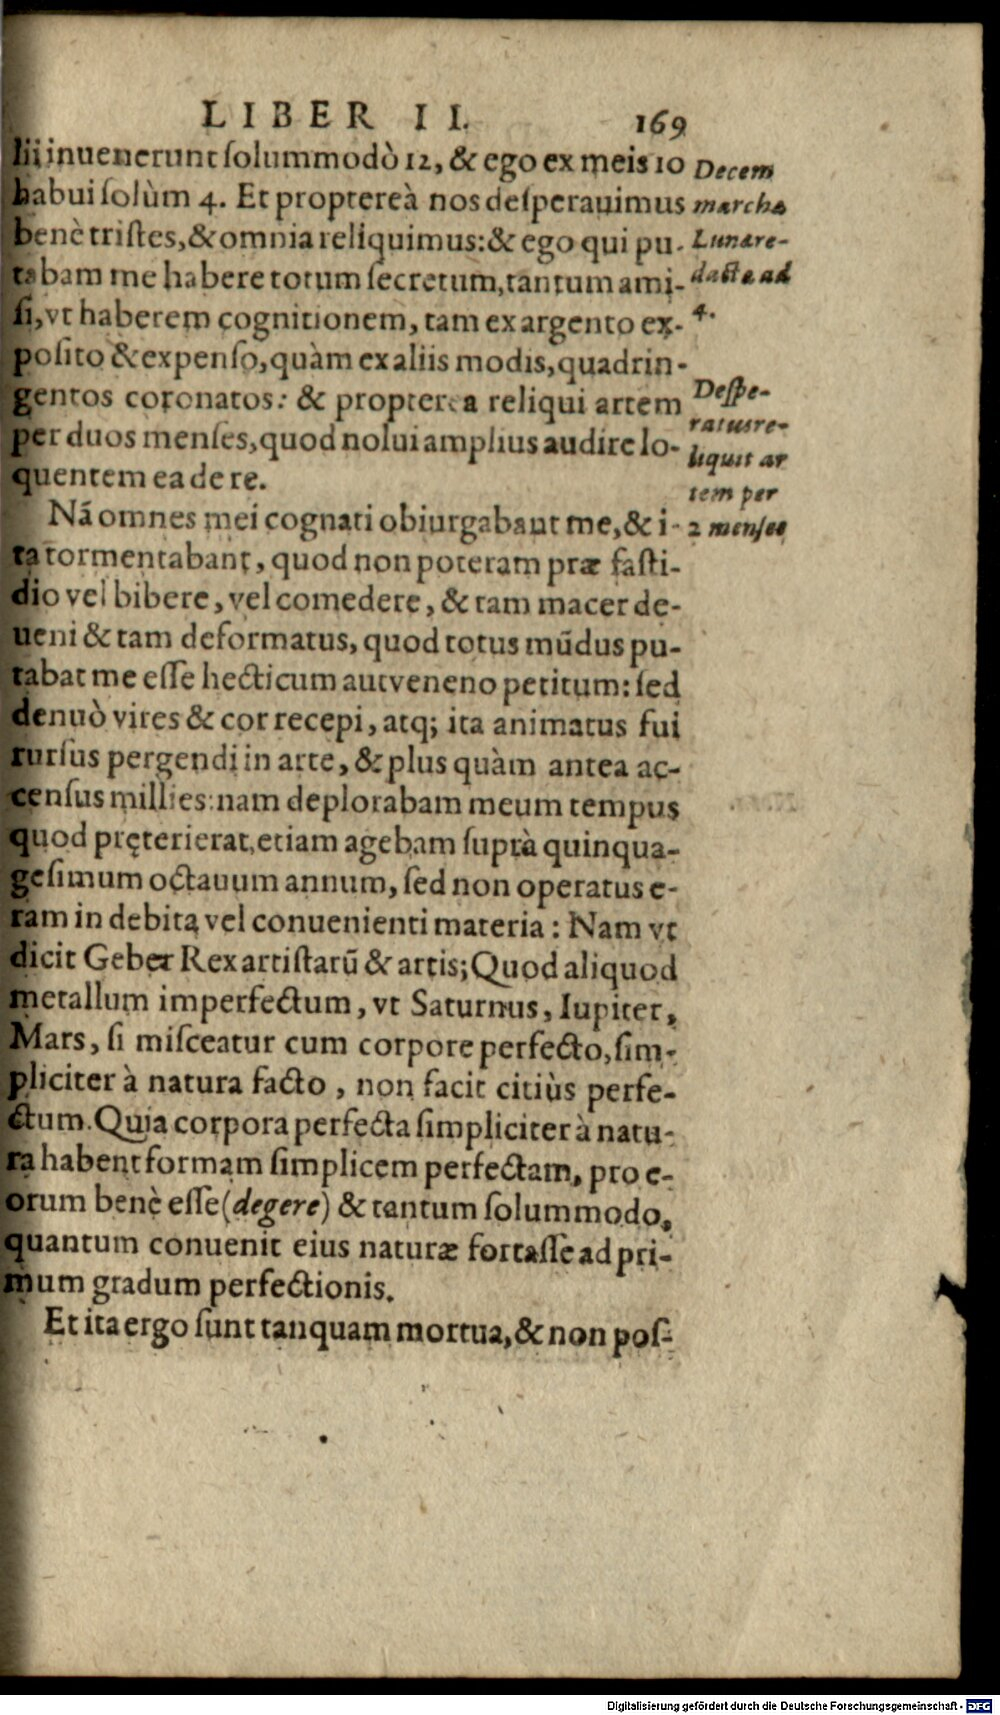 LIBER II. 169
lii inuenerunt solummodò 12, & ego ex meis 10
habui solùm 4. Et proptereà nos desperauimus
benè tristes, & omnia reliquimus: & ego qui pu-
tabam me habere totum secretum, tantum ami-
si, vt haberem cognitionem, tam ex argento ex-
posito & expenso, quàm ex aliis modis, quadrin-
gentos coronatos: & propterea reliqui artem
per duos menses, quod nolui amplius audire lo-
quentem ea de re.
Nā omnes mei cognati obiurgabant me, & i-
ta tormentabant, quod non poteram præ fasti-
dio vel bibere, vel comedere, & tam macer de-
ueni & tam deformatus, quod totus mūdus pu-
tabat me esse hecticum aut veneno petitum: sed
denuò vires & cor recepi, atq; ita animatus fui
rursus pergendi in arte, & plus quàm antea ac-
census millies: nam deplorabam meum tempus
quod pręterierat, etiam agebam suprà quinqua-
gesimum octauum annum, sed non operatus e-
ram in debita vel conuenienti materia: Nam vt
dicit Geber Rex artistarū & artis; Quod aliquod
metallum imperfectum, vt Saturnus, Iupiter,
Mars, si misceatur cum corpore perfecto, sim-
pliciter à natura facto, non facit citiùs perfe-
ctum. Quia corpora perfecta simpliciter à natu-
ra habent formam simplicem perfectam, pro e-
orum benè esse (degere) & tantum solummodo,
quantum conuenit eius naturæ fortasse ad pri-
mum gradum perfectionis.
Et ita ergo sunt tanquam mortua, & non pos-
Decem
marchæ
Lunæ re-
dactæ ad
4.
Despe-
ratus re-
liquit ar
tem per
2 menses
Digitalisierung gefördert durch die Deutsche Forschungsgemeinschaft - DFG